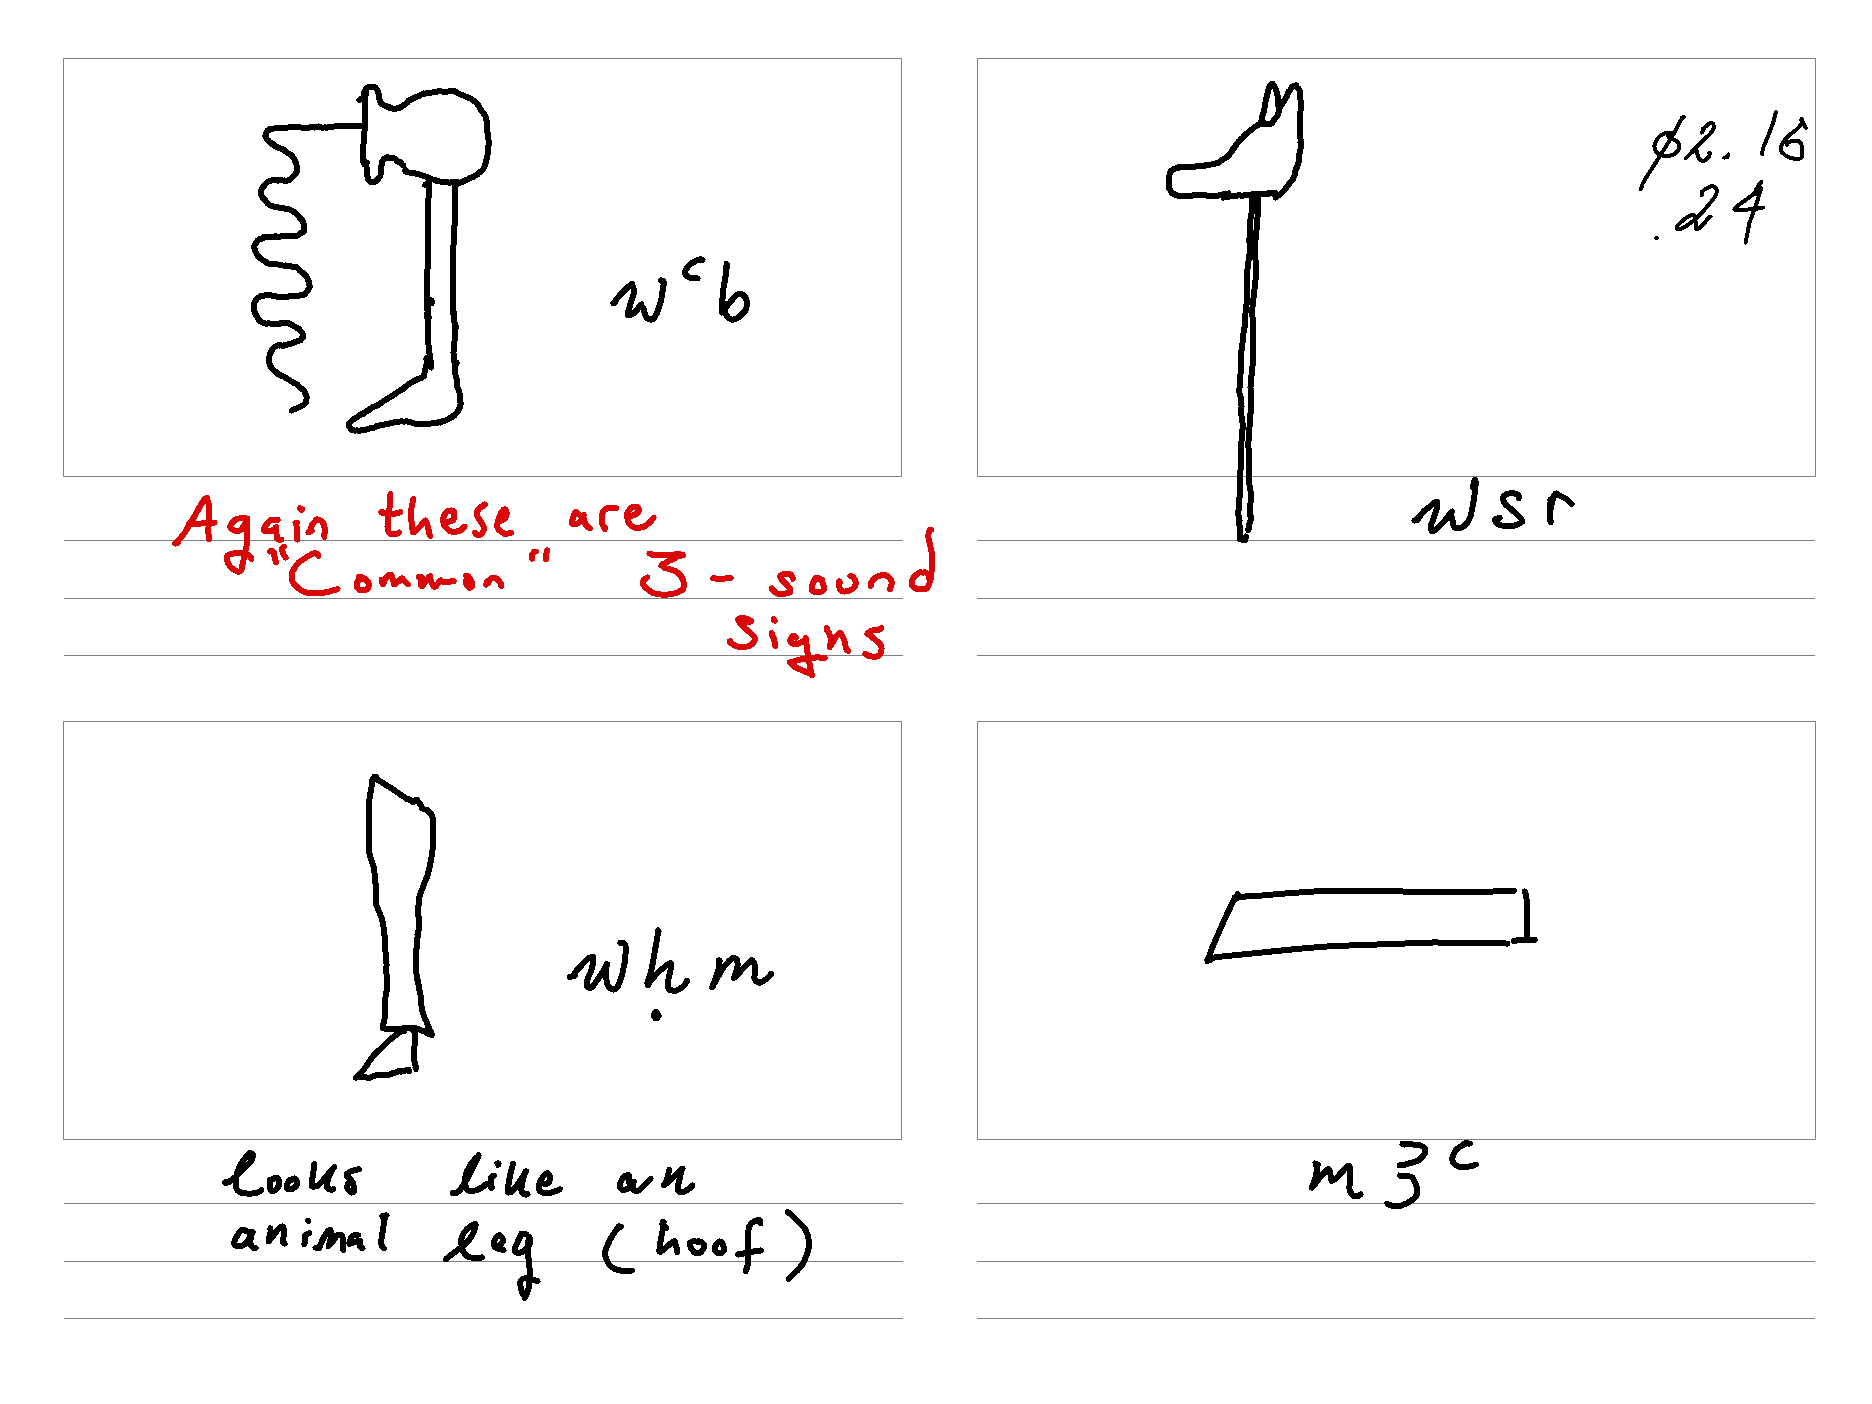 wꜥb
Again these are
"Common" 3-sound
signs
02.16
.24
wsr
wḥm
looks like an
animal leg (hoof)
m3ꜥ